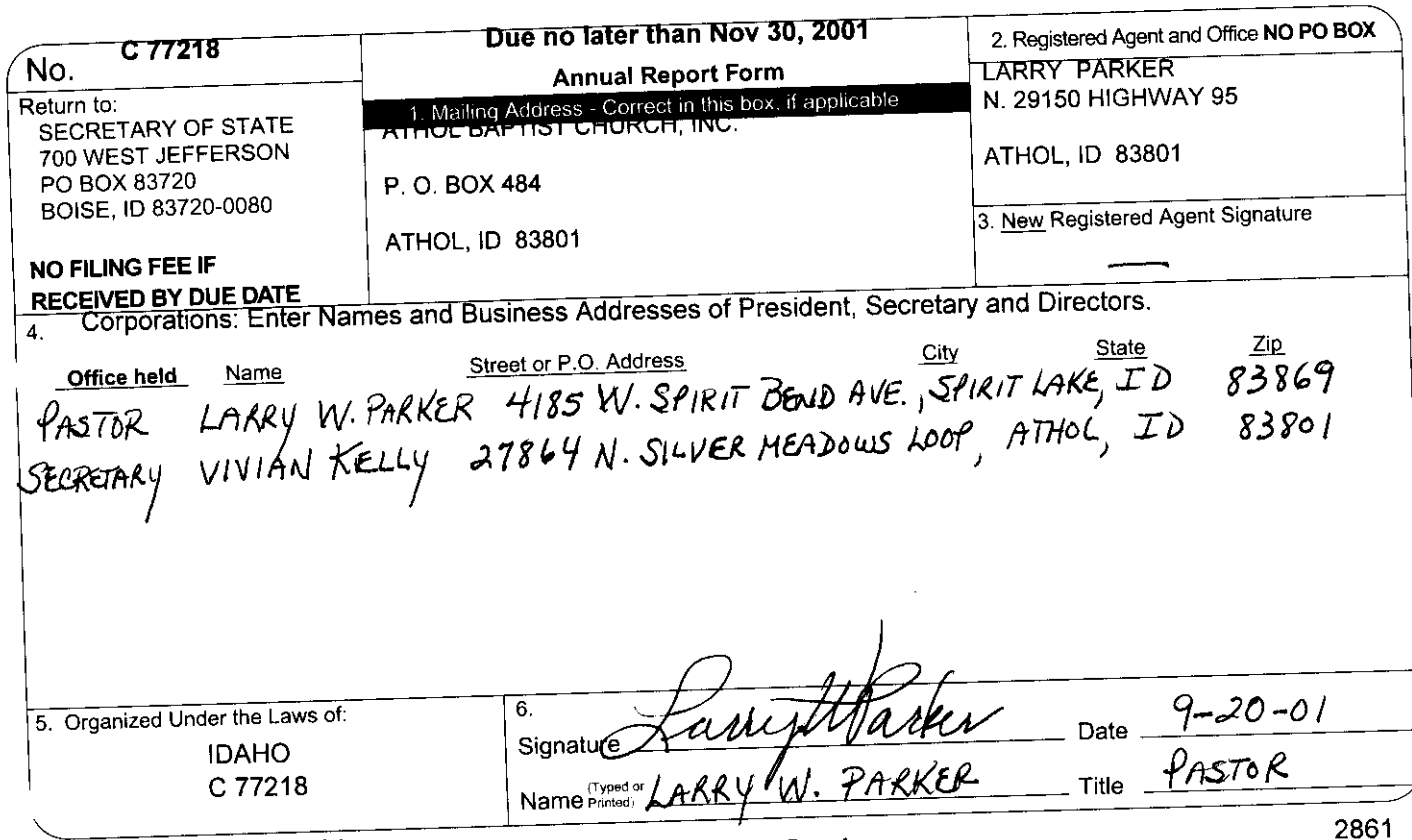 No. C 77218
Return to:
SECRETARY OF STATE
700 WEST JEFFERSON
PO BOX 83720
BOISE, ID 83720-0080
NO FILING FEE IF
RECEIVED BY DUE DATE
Due no later than Nov 30, 2001
Annual Report Form
1. Mailing Address - Correct in this box, if applicable
ATHOL BAPTIST CHURCH, INC.
P. O. BOX 484
ATHOL, ID 83801
2. Registered Agent and Office NO PO BOX
LARRY PARKER
N. 29150 HIGHWAY 95
ATHOL, ID 83801
3. New Registered Agent Signature
—
4. Corporations: Enter Names and Business Addresses of President, Secretary and Directors.
Office held Name Street or P.O. Address City State Zip
PASTOR LARRY W. PARKER 4185 W. SPIRIT BEND AVE., SPIRIT LAKE, ID 83869
SECRETARY VIVIAN KELLY 27864 N. SILVER MEADOWS LOOP, ATHOL, ID 83801
5. Organized Under the Laws of:
IDAHO
C 77218
6.
Signature Larry W Parker Date 9-20-01
Name (Typed or Printed) LARRY W. PARKER Title PASTOR
2861